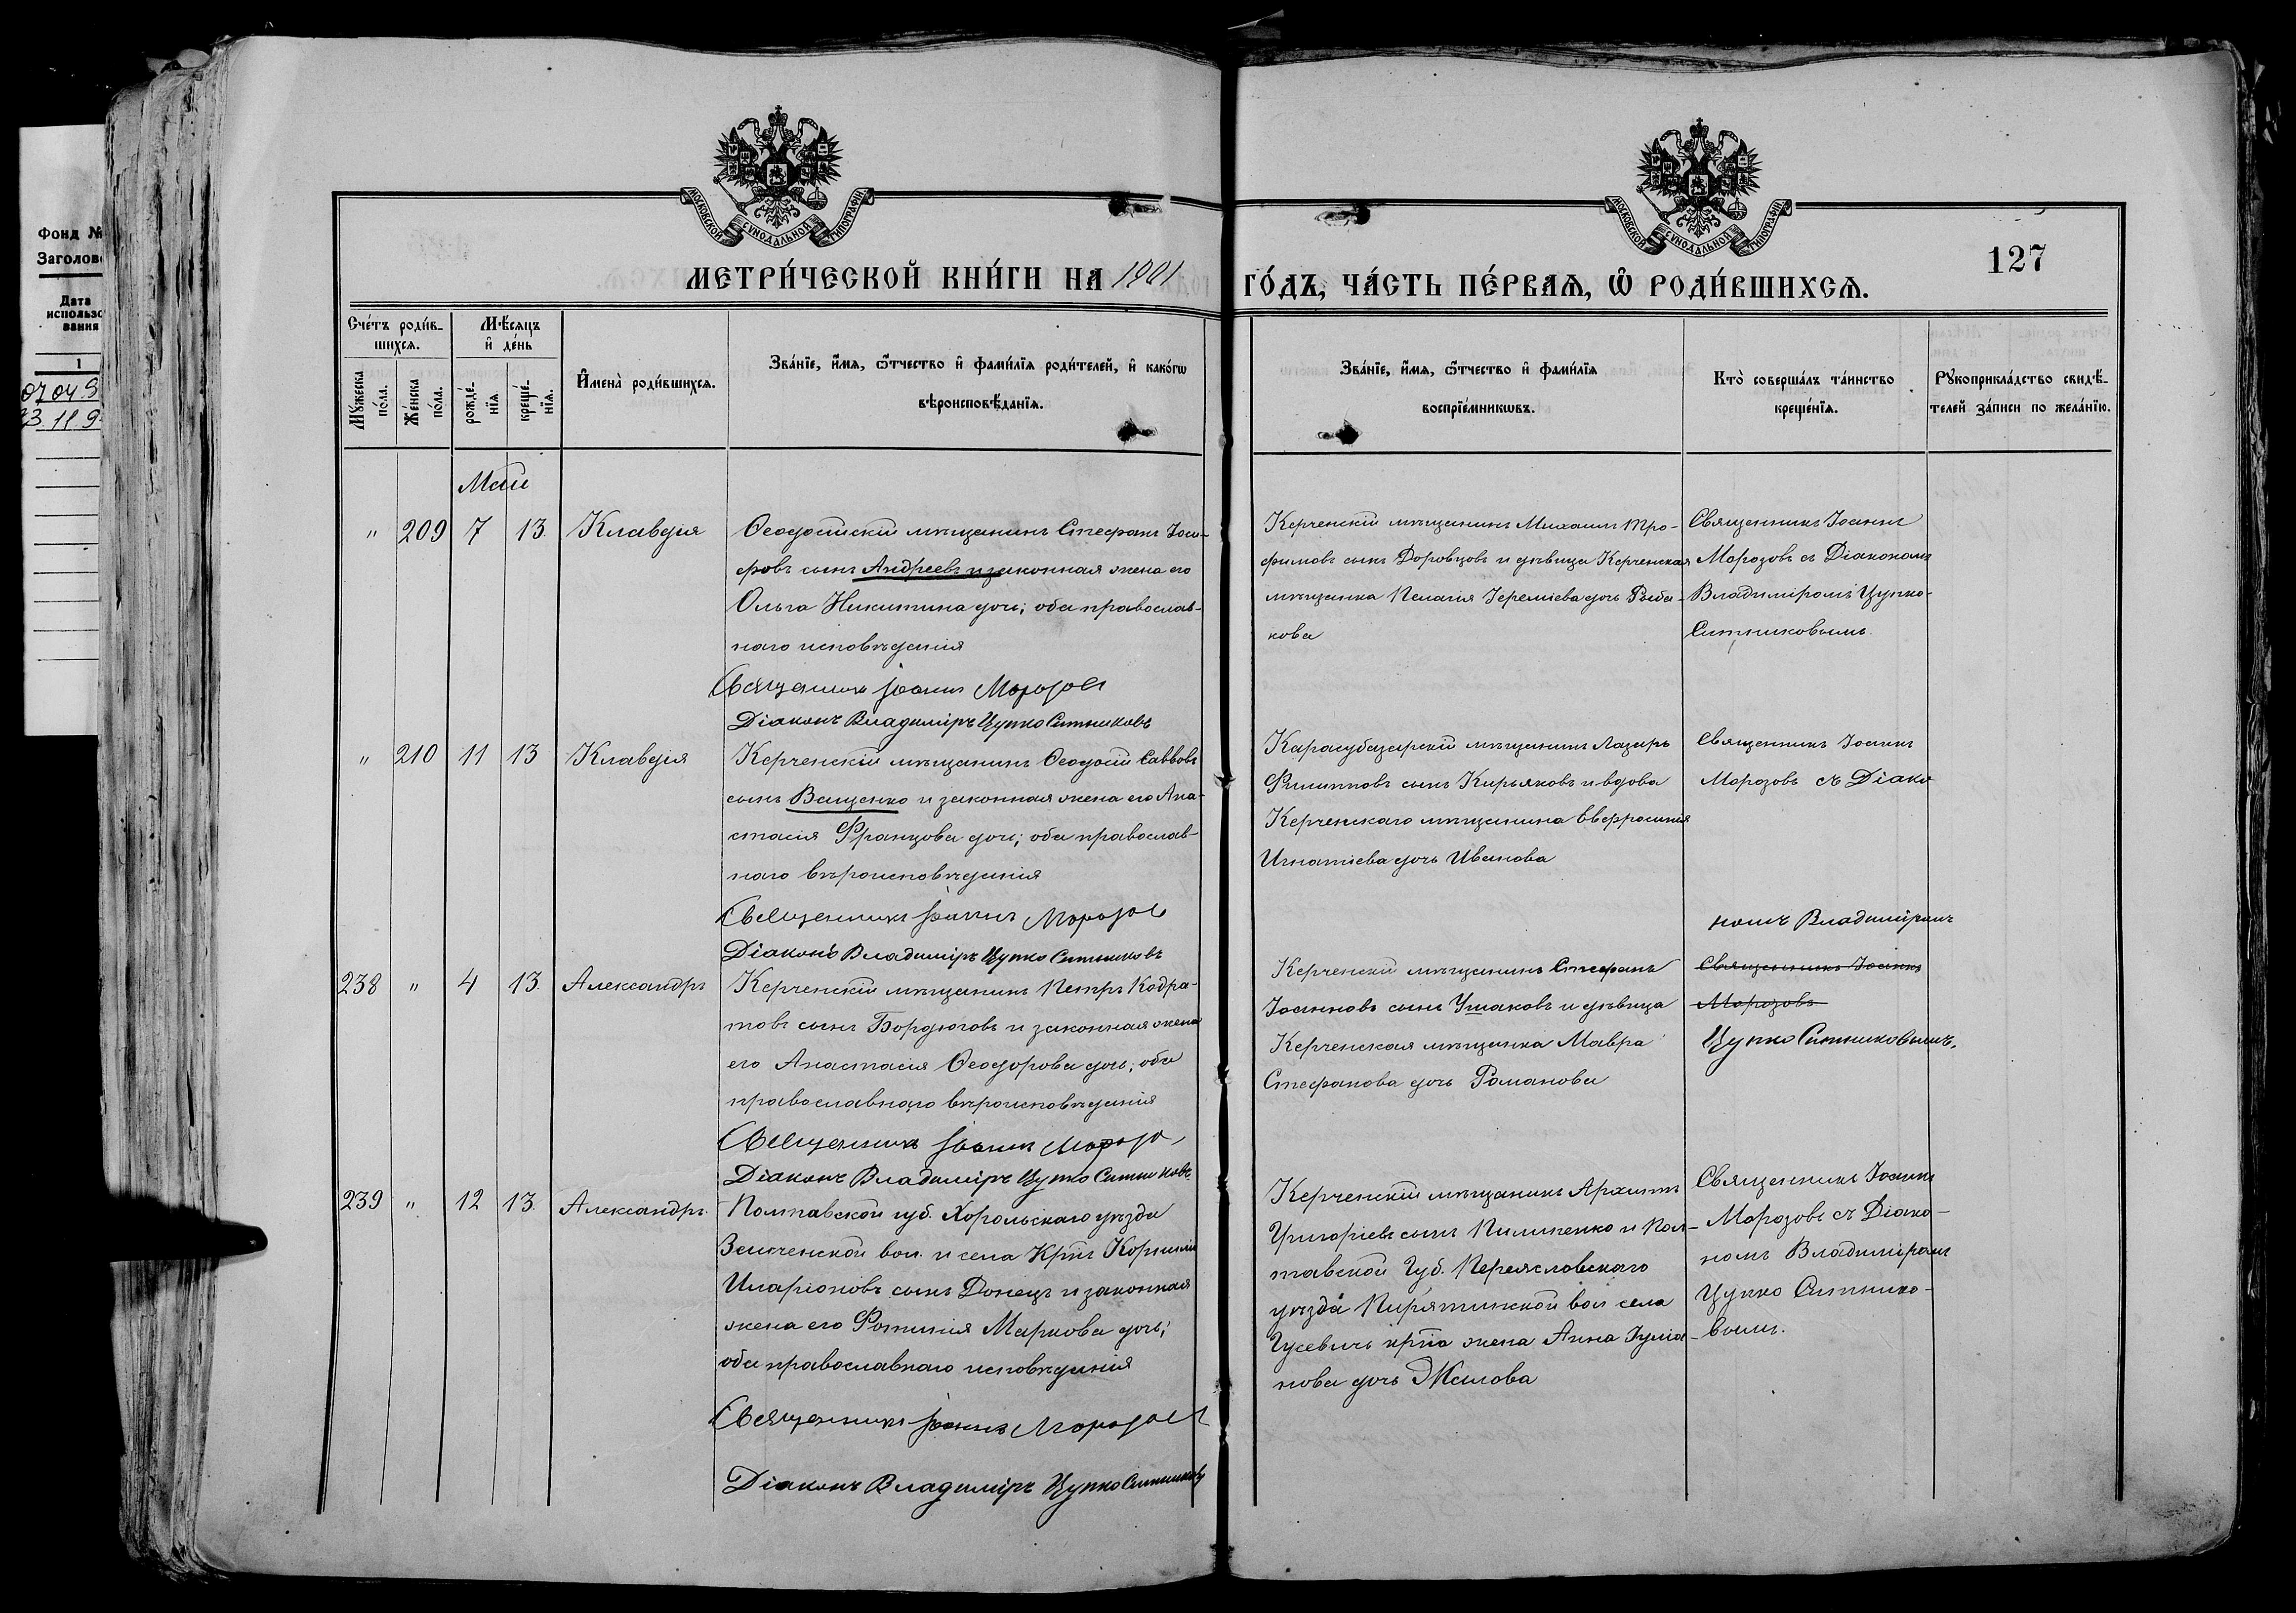 Фонд №
Заголов
Дата
использо
вания
1
07 04 9
23.11.9
МОСКОВСКОЙ СѴНОДАЛЬНОЙ ТИПОГРАФІИ
МОСКОВСКОЙ СѴНОДАЛЬНОЙ ТИПОГРАФІИ
127
МЕТРИ́ЧЕСКОЙ КНИ́ГИ НА 1901 ГО́ДЪ, ЧА́СТЬ ПЕ́РВАѦ, Ѡ҆ РОДИ́ВШИХСѦ.
Сче́тъ роди́в-
шихсѧ.
Мꙋ́жеска
по́ла.
Же́нска
по́ла.
Мѣ́сѧцъ
и҆ де́нь
рожде́-
нїѧ.
креще́-
нїѧ.
И҆мена̀ роди́вшихсѧ.
Зва́нїе, и҆́мѧ, ѻ҆́тчество и҆ фами́лїѧ роди́телей, и҆ како́гѡ
вѣроисповѣ́данїѧ.
Зва́нїе, и҆́мѧ, ѻ҆́тчество и҆ фами́лїѧ
воспрїе́мникѡвъ.
Кто̀ соверша́лъ та́инство
креще́нїѧ.
Рꙋкоприкла́дство свидѣ́-
телей за́писи по жела́нїю.
Май
" 209 7 13. Клавдія
Ѳеодосійскій мѣщанинъ Стефанъ Іоси-
фовъ сынъ Андреевъ и законная жена его
Ольга Никитина дочь; оба православ-
наго исповѣданія
Священникъ Іоаннъ Морозов
Діаконъ Владиміръ Цупко Ситниковъ
Керченскій мѣщанинъ Михаилъ Тро-
фимовъ сынъ Доровцовъ и дѣвица Керченская
мѣщанка Пелагія Іереміева дочь Рыба-
кова
Священникъ Іоаннъ
Морозовъ съ Діакономъ
Владиміромъ Цупко-
Ситниковымъ.
" 210 11 13 Клавдія
Керченскій мѣщанинъ Ѳеодосій Саввовъ
сынъ Ващенко и законная жена его Ана-
стасія Францова дочь; оба православ-
наго вѣроисповѣданія
Священникъ Іоаннъ Морозов
Діаконъ Владиміръ Цупко Ситниковъ
Карасубазарскій мѣщанинъ Лазарь
Филипповъ сынъ Кирьяковъ и вдова
Керченскаго мѣщанина Евфросинія
Игнатіева дочь Иванова
Священникъ Іоаннъ
Морозовъ съ Діако
номъ Владиміромъ
238 " 4 13. Александръ
Керченскій мѣщанинъ Петръ Кодра-
товъ сынъ Бордюговъ и законная жена
его Анастасія Ѳеодорова дочь; оба
православнаго вѣроисповѣданія
Священникъ Іоаннъ Морозо
Діаконъ Владиміръ Цупко Ситниковъ
Керченскій мѣщанинъ Стефанъ
Іоанновъ сынъ Ушаковъ и дѣвица
Керченская мѣщанка Мавра
Стефанова дочь Романова
Священникъ Іоаннъ
Морозовъ
Цупко Ситниковымъ.
239 " 12 13. Александръ.
Полтавской губ. Хорольскаго уѣзда
вол. и села Крн Корнилій
Иларіоновъ сынъ Донецъ и законная
жена его Фотинія Маркова дочь;
оба православнаго исповѣданія
Священникъ Іоаннъ Морозов
Діаконъ Владиміръ Цупко Ситниковъ
Керченскій мѣщанинъ Архипъ
Григоріевъ сынъ Пилипенко и Пол-
тавской Губ. Переясловскаго
уѣзда Пирятинской вол села
Гусевичъ жена Анна Іуліа-
нова дочь Жилова
Священникъ Іоаннъ
Морозовъ съ Діако-
номъ Владиміромъ
Цупко Ситнико-
вымъ.